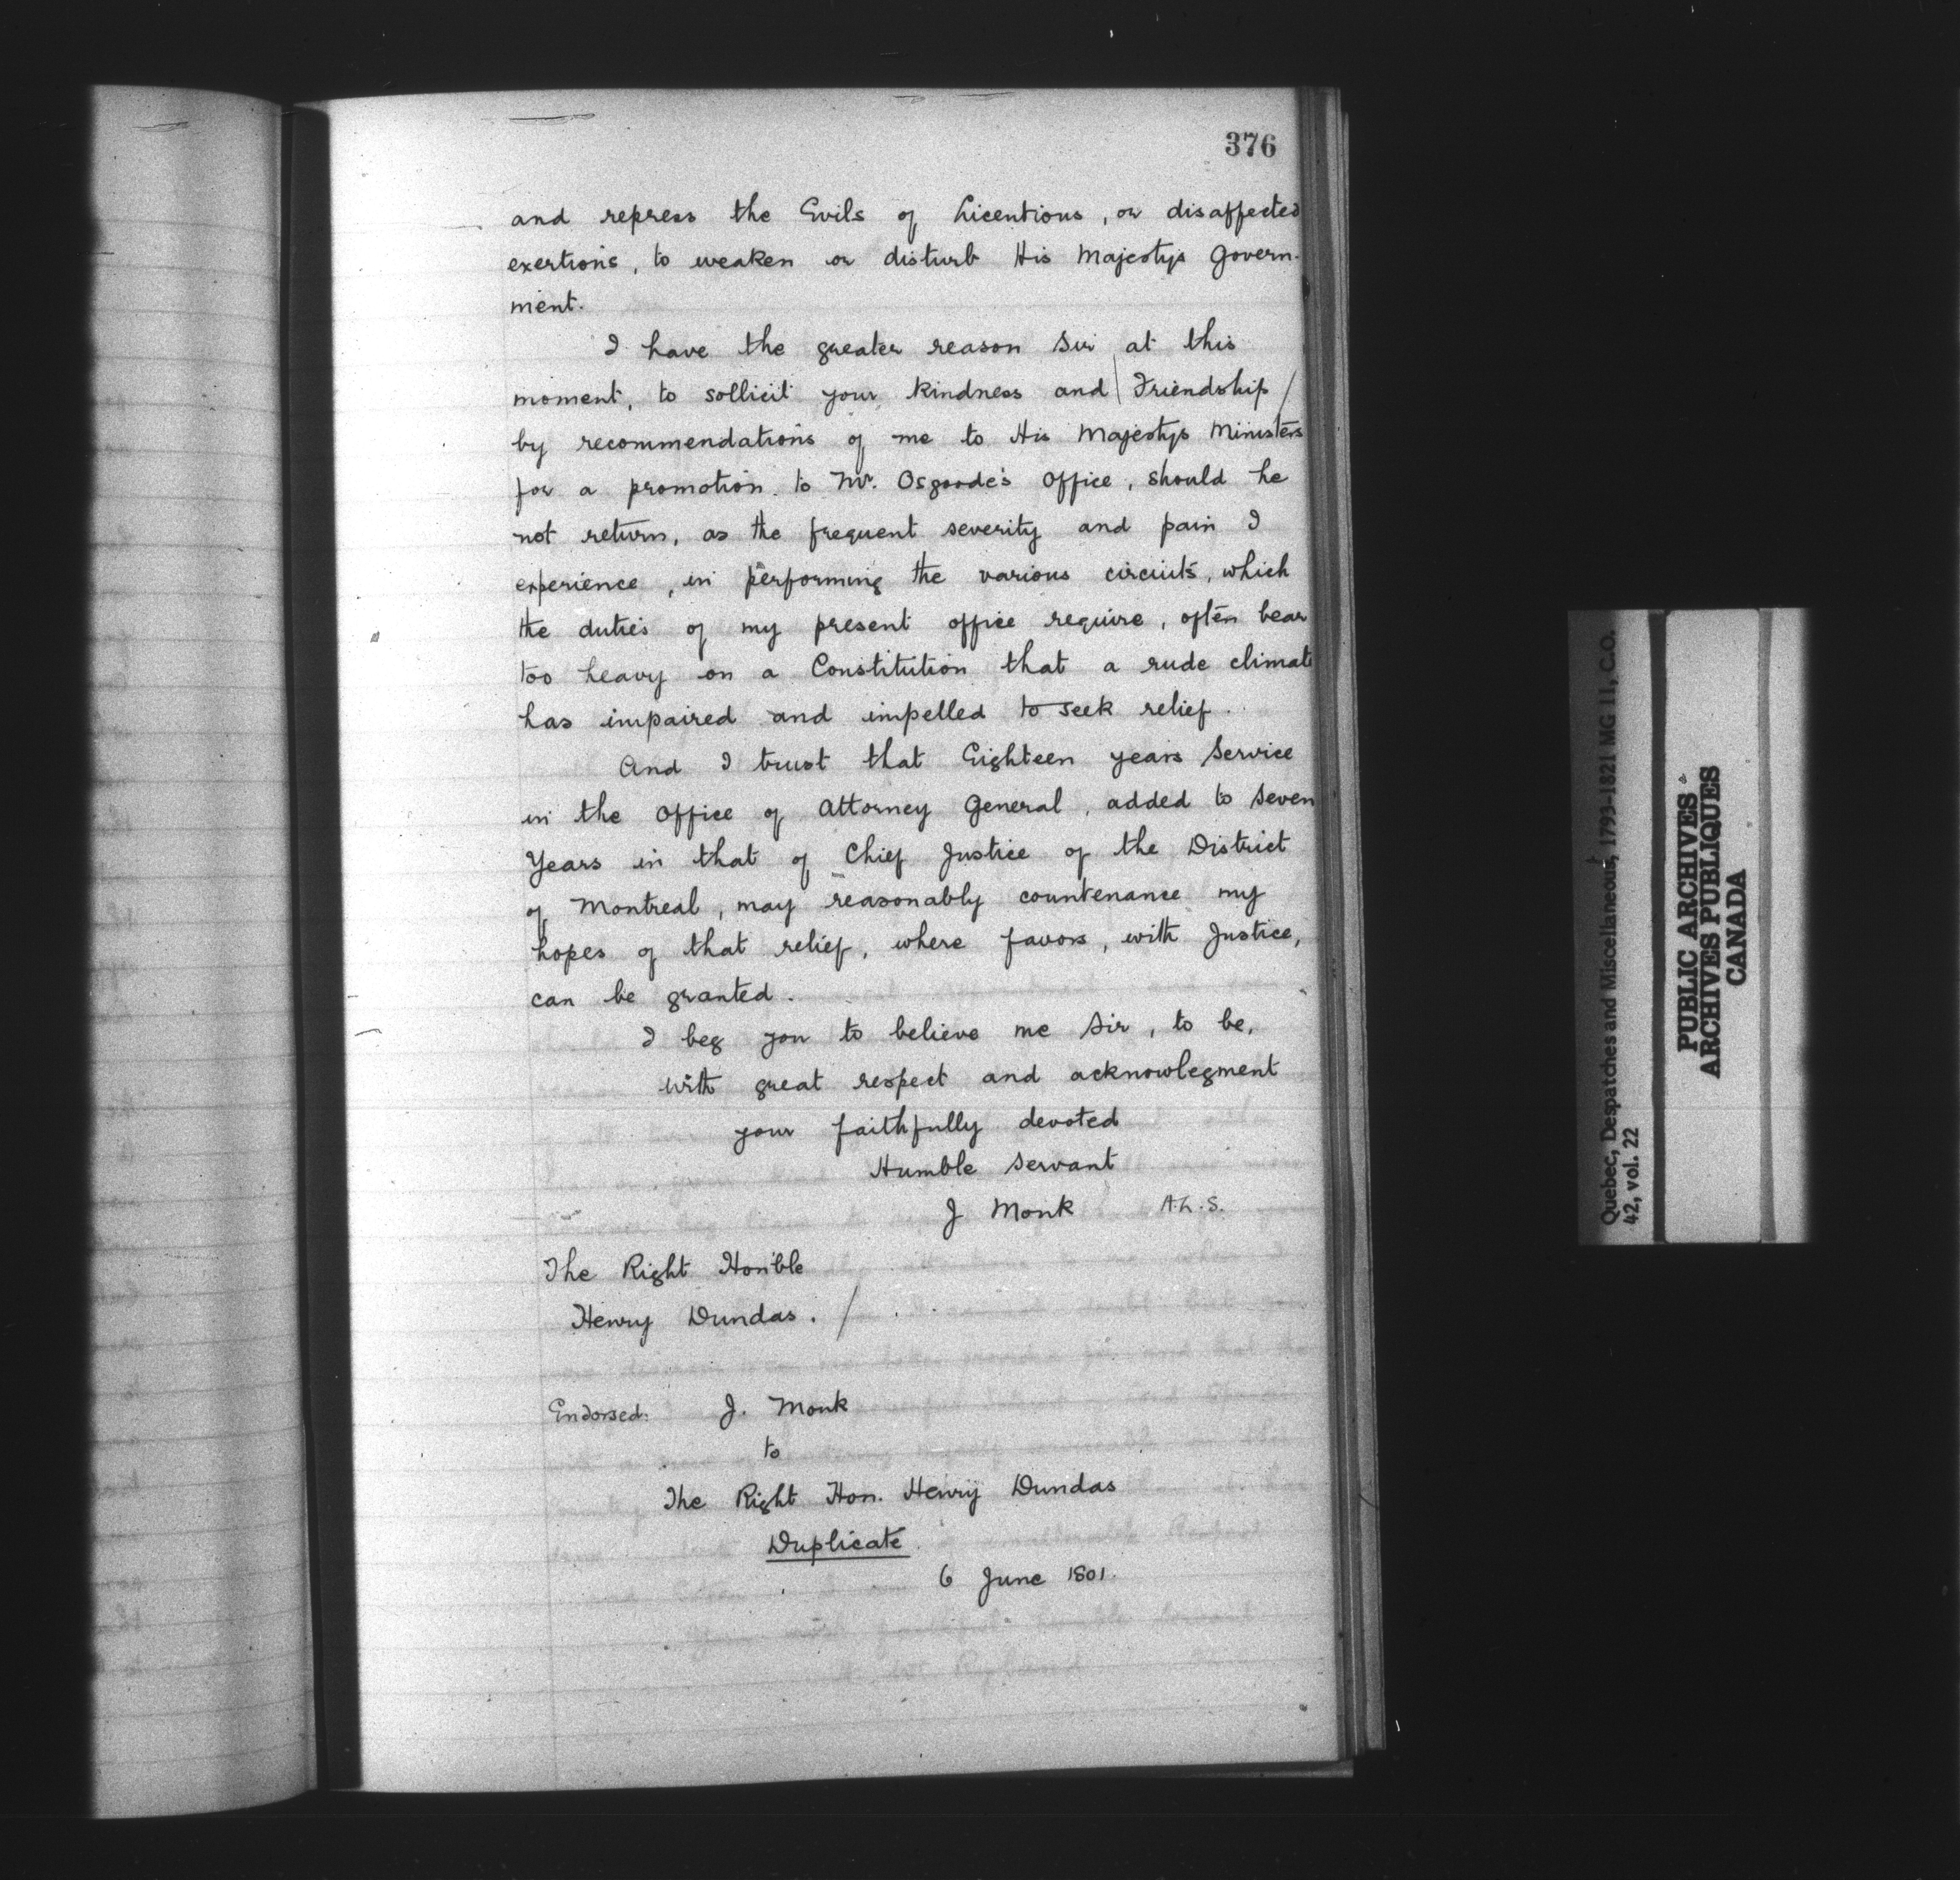 376
and repress the Evils of Licentious, or disaffected
exertions, to weaken or disturb His Majestys Govern-
ment.
I have the greater reason Sir at this
moment, to sollicit your kindness and Friendship /
by recommendations of me to His Majestys Ministers
for a promotion to Mr. Osgoode's Office, should he
not return, as the frequent severity and pain I
experience, in performing the various circuits, which
the duties of my present office require, often bear
too heavy on a Constitution that a rude climate
has impaired and impelled to seek relief.
And I trust that Eighteen years Service
in the Office of Attorney General, added to Seven
Years in that of Chief Justice of the District
of Montreal, may reasonably countenance my
hopes of that relief, where favors, with Justice,
can be granted.
I beg you to believe me Sir, to be,
with great respect and acknowlegment
your faithfully devoted
Humble Servant
J Monk A.L.S.
The Right Honble
Henry Dundas. /
Endorsed: J. Monk
to
The Right Hon. Henry Dundas
Duplicate
6 June 1801.
Quebec, Despatches and Miscellaneous, 1793-1821 MG 11, C.O.
42, vol. 22
PUBLIC ARCHIVES
ARCHIVES PUBLIQUES
CANADA